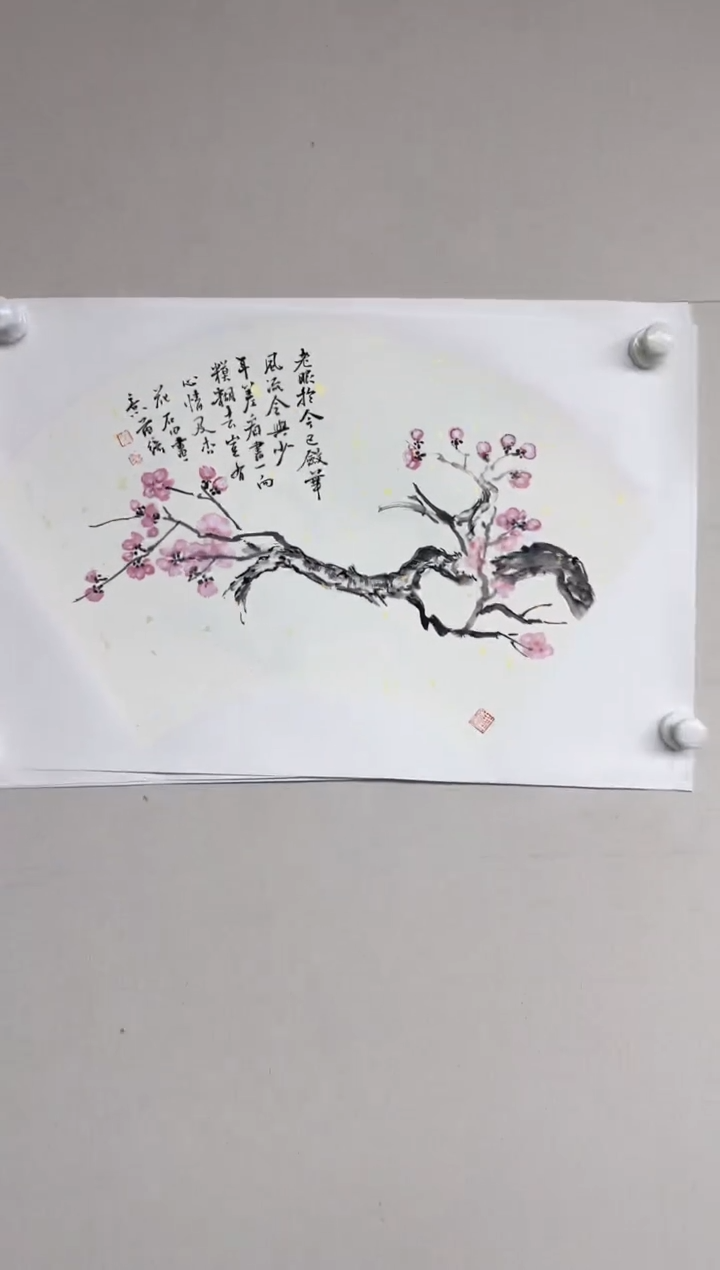 老眼於今已斂華
風流全與少
年差看書一向
糢糊去豈有
心情及杏
花石田畫
意